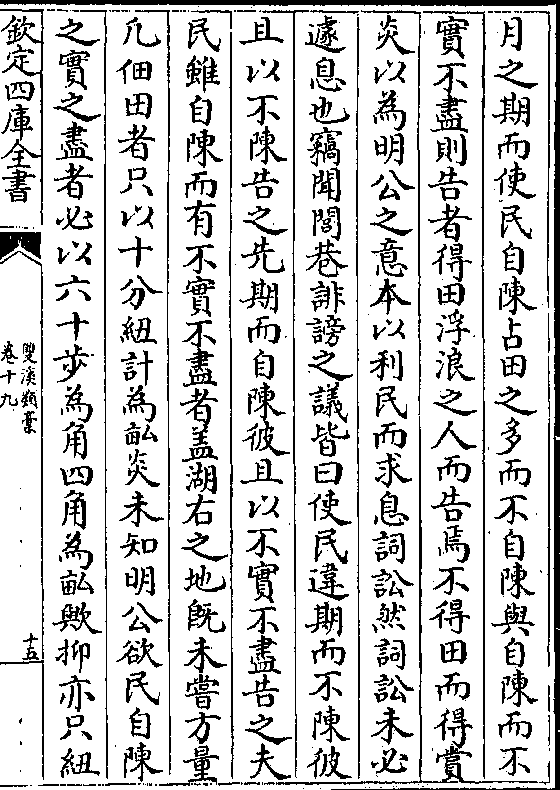 月之期而使民自陳占田之多而不自陳與自陳而不
實不盡則告者得田浮浪之人而告焉不得田而得賞
炎以為明公之意本以利民而求息詞訟然詞訟未必
遽息也竊聞閭巷誹謗之議皆曰使民違期而不陳彼
且以不陳告之先期而自陳彼且以不實不盡告之夫
民雖自陳而有不實不盡者盖湖右之地旣未嘗方量
凡佃田者只以十分紐計為畆炎未知明公欲民自陳
之實之盡者必以六十步為角四角為畆歟抑亦只紐
欽定四庫全書
雙溪類稾
卷十九
十五